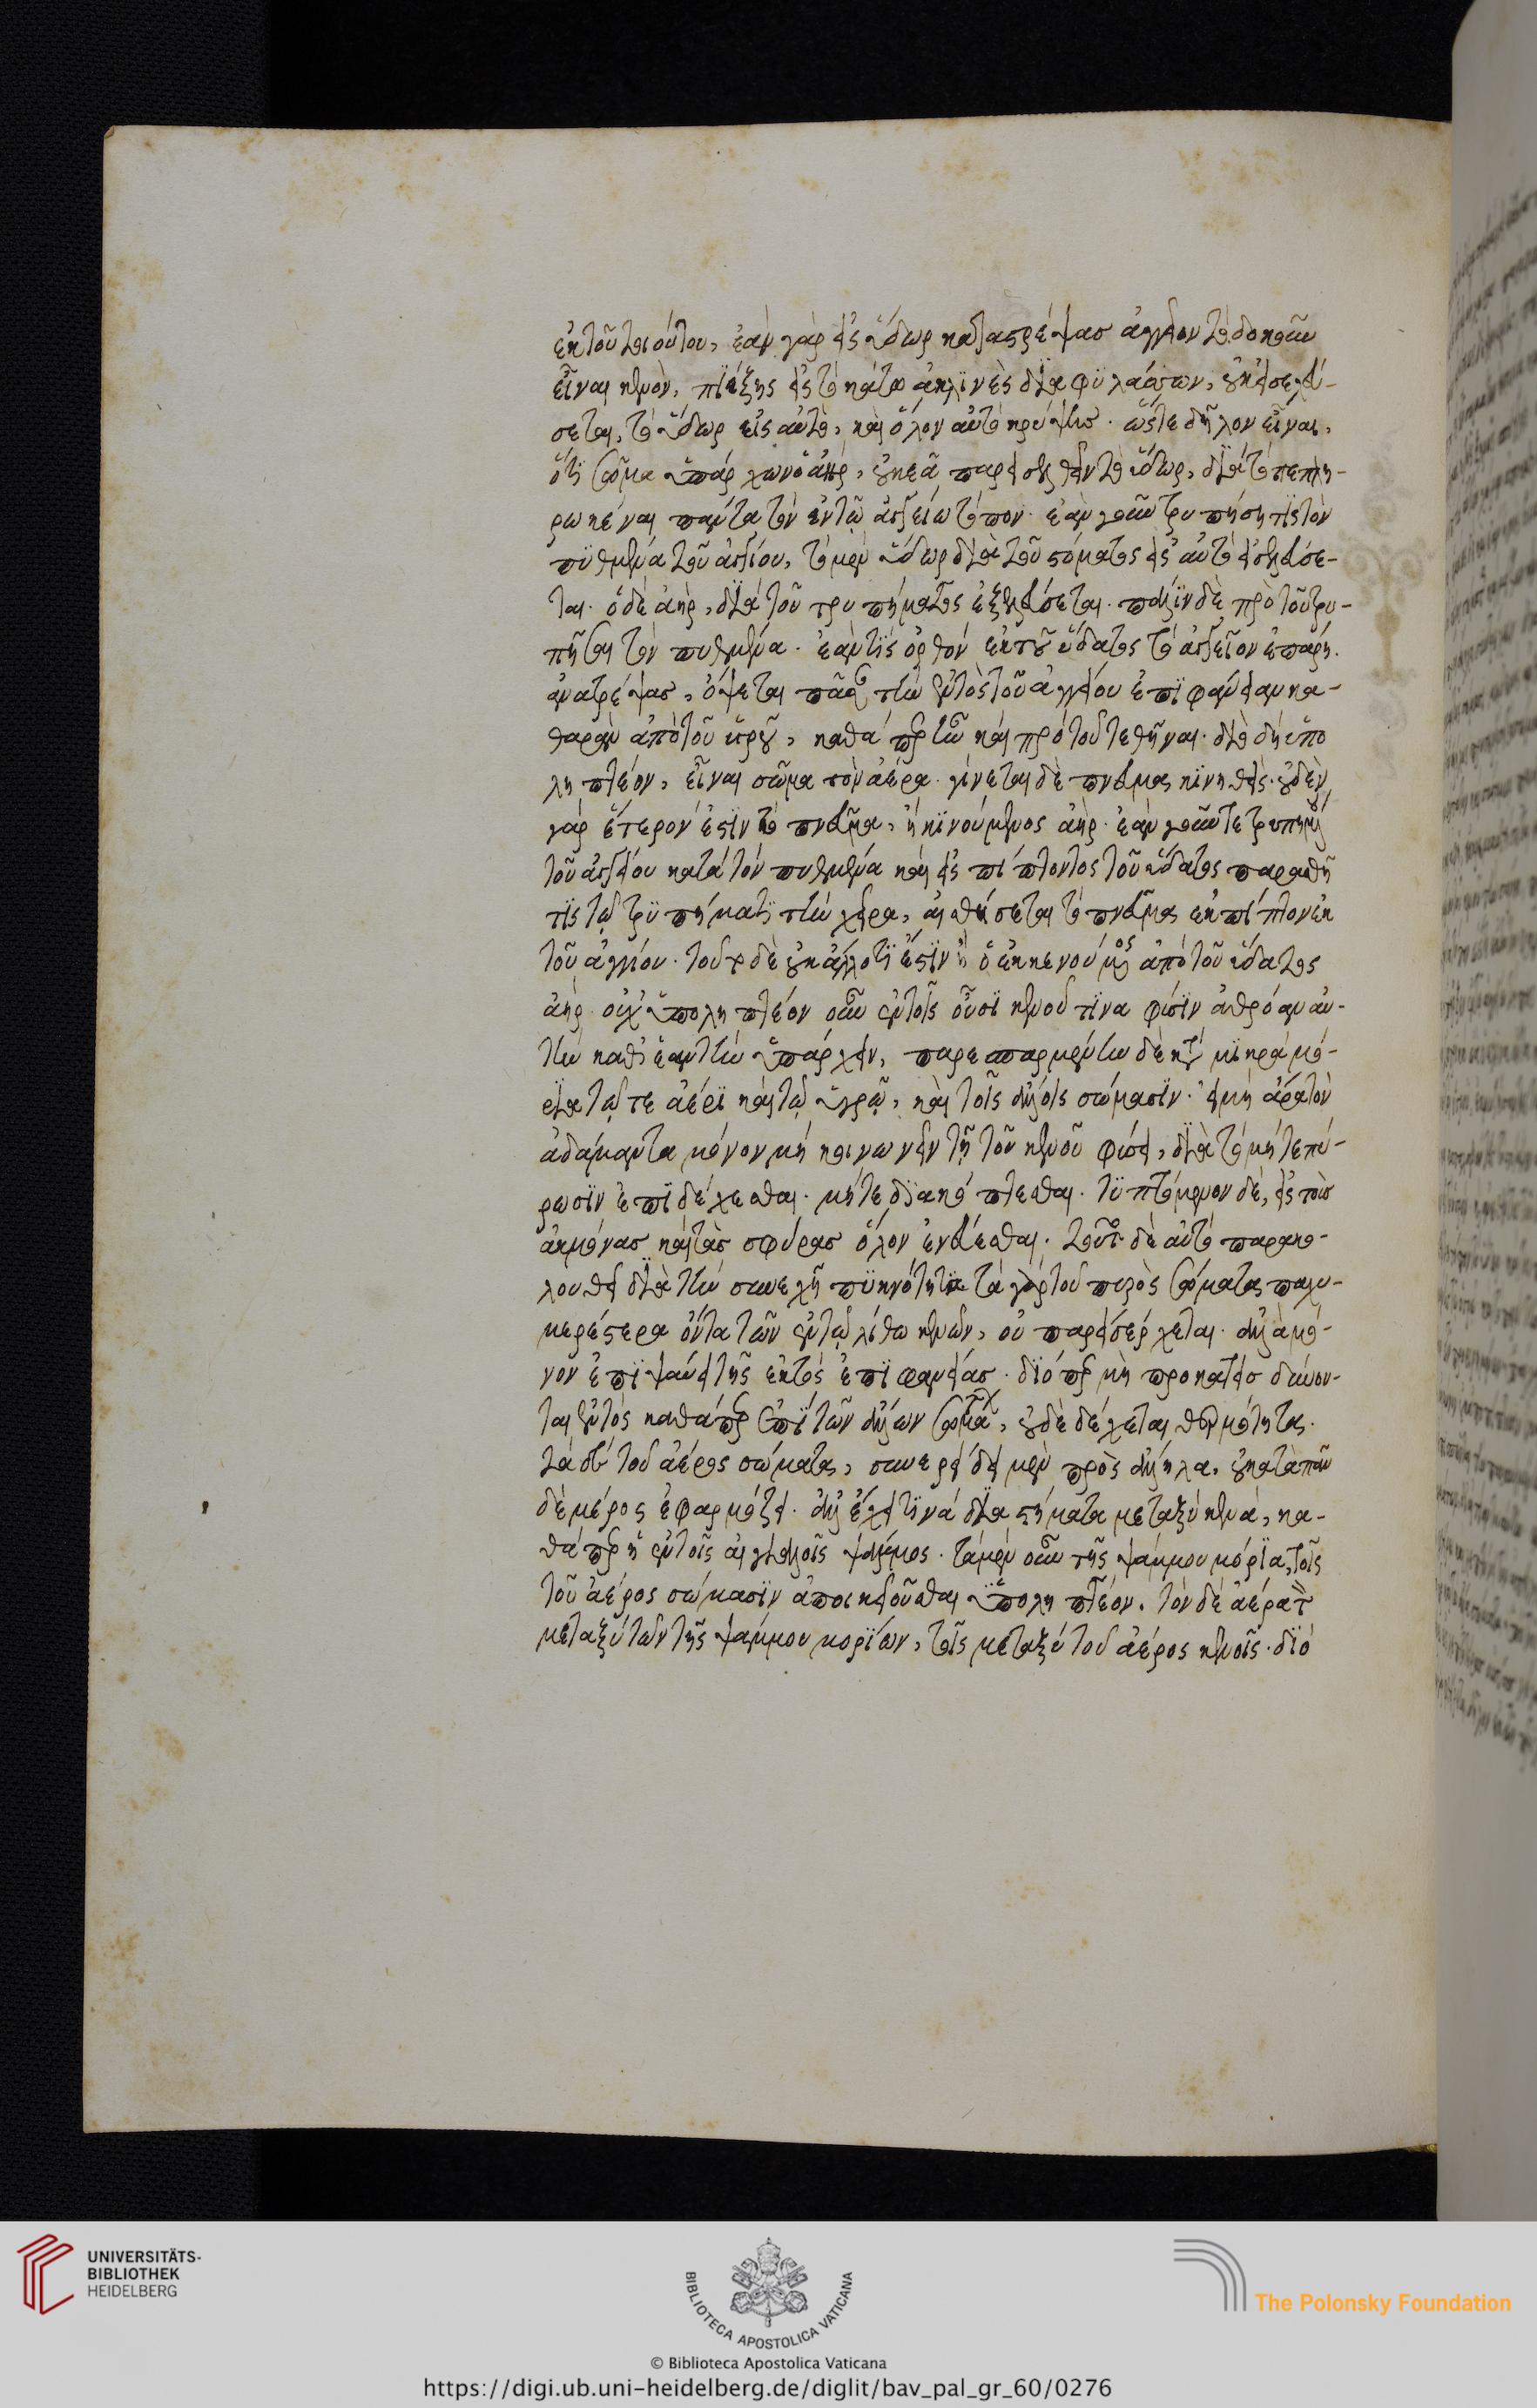 ἐκ τοῦ τοιούτου, ἐὰν γὰρ εἰς ὕδωρ καταστρέψας ἀγγεῖον τὸ δοκοῦν
εἶναι κενὸν, πιέζῃς εἰς τὸ κάτω ἀκλινὲς διαφυλάσσων, οὐκ εἰσελεύ-
σεται, τὸ ὕδωρ εἰς αὐτὸ, κἂν ὅλον αὐτὸ κρύψῃς. ὥστε δῆλον εἶναι,
ὅτι σῶμα ὑπάρχων ὁ ἀὴρ, οὐκ ἐᾷ παρεισελθεῖν τὸ ὕδωρ, διὰ τὸ πεπλη-
ρωκέναι πάντα τὸν ἐν τῷ ἀγγείῳ τόπον. ἐὰν γοῦν τρυπήσῃ τις τὸν
πυθμένα τοῦ ἀγγείου, τὸ μὲν ὕδωρ διὰ τοῦ στόματος εἰς αὐτὸ εἰσελεύσε-
ται. ὁ δὲ ἀὴρ, διὰ τοῦ τρυπήματος ἐξελεύσεται. πάλιν δὲ πρὸ τοῦ τρυ-
πῆσαι τὸν πυθμένα. ἐάν τις ὀρθὸν ἐκ τοῦ ὕδατος τὸ ἀγγεῖον ἐπάρῃ.
ἀνατρέψας, ὄψεται πᾶσαν τὴν ἐντὸς τοῦ ἀγγείου ἐπιφάνειαν κα-
θαρὰν ἀπὸ τοῦ ὑγροῦ, καθάπερ ἦν καὶ πρὸ τοῦ τεθῆναι. διὸ δὴ ὑπο
ληπτέον, εἶναι σῶμα τὸν ἀέρα. γίνεται δὲ πνεῦμα κινηθείς. οὐδὲν
γὰρ ἕτερόν ἐστιν τὸ πνεῦμα, ἢ κινούμενος ἀήρ. ἐὰν γοῦν τετρυπημένου
τοῦ ἀγγείου κατὰ τὸν πυθμένα καὶ εἰσπίπτοντος τοῦ ὕδατος παραθῇ
τις τῷ τρυπήματι τὴν χεῖρα, αἰσθήσεται τὸ πνεῦμα ἐκπίπτον ἐκ
τοῦ ἀγγείου. τοῦτο δὲ οὐκ ἄλλο τι ἐστιν ἢ ὁ ἐκκενούμενος ἀπὸ τοῦ ὕδατος
ἀήρ. οὐχ ὑποληπτέον οὖν ἐν τοῖς οὖσι κενοῦ τινα φύσιν ἀθρόαν αὐ-
τὴν καθ' ἑαυτὴν ὑπάρχειν, παρεσπαρμένην δὲ κατὰ μικρὰ μό-
ρια τῷ τε ἀέρι καὶ τῷ ὑγρῷ, καὶ τοῖς ἄλλοις σώμασιν. εἰ μὴ ἄρα τὸν
ἀδάμαντα μόνον μὴ κοινωνεῖν τῇ τοῦ κενοῦ φύσει, διὰ τὸ μήτε πύ-
ρωσιν ἐπιδέχεσθαι. μήτε διακόπτεσθαι. τυπτόμενον δὲ, εἰς τοὺς
ἄκμονας καὶ τὰς σφύρας ὅλον ἐνδύεσθαι. τοῦτο δὲ αὐτῷ παρακο-
λουθεῖ διὰ τὴν συνεχῆ πυκνότητα τὰ γὰρ τοῦ πυρὸς σώματα παχυ-
μερέστερα ὄντα τῶν ἐν τῷ λίθῳ κενῶν, οὐ παρεισέρχεται. ἀλλὰ μό-
νον ἐπιψαύει τῆς ἐκτὸς ἐπιφανείας. διόπερ μὴ προκατεισδύνον-
ται ἐντὸς καθάπερ ἐπὶ τῶν ἄλλων σωμάτων, οὐδὲ δέχεται θερμότητα.
τὰ δὲ τοῦ ἀέρος σώματα, συνερείδει μὲν πρὸς ἄλληλα. οὐ κατὰ πᾶν
δὲ μέρος ἐφαρμόζει. ἀλλ' ἔχει τινὰ διαστήματα μεταξὺ κενά, κα-
θάπερ ἡ ἐν τοῖς αἰγιαλοῖς ψάμμος. τὰ μὲν οὖν τῆς ψάμμου μόρια, τοῖς
τοῦ ἀέρος σώμασιν ἀποικειοῦσθαι ὑποληπτέον. τὸν δὲ ἀέρα τὸν
μεταξὺ τῶν τῆς ψάμμου μορίων, τοῖς μεταξὺ τοῦ ἀέρος κενοῖς. διὸ
UNIVERSITÄTS-
BIBLIOTHEK
HEIDELBERG
BIBLIOTECA APOSTOLICA VATICANA
The Polonsky Foundation
© Biblioteca Apostolica Vaticana
https://digi.ub.uni-heidelberg.de/diglit/bav_pal_gr_60/0276